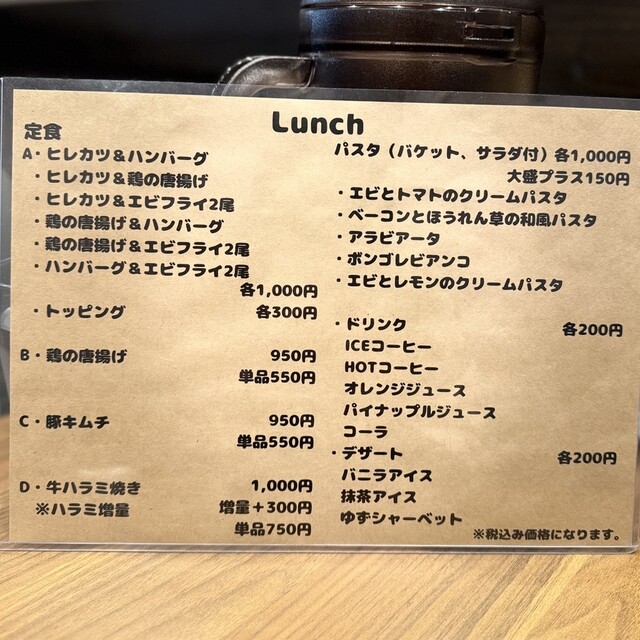 Lunch
定食
A・ヒレカツ＆ハンバーグ
・ヒレカツ＆鶏の唐揚げ
・ヒレカツ＆エビフライ2尾
・鶏の唐揚げ＆ハンバーグ
・鶏の唐揚げ＆エビフライ2尾
・ハンバーグ＆エビフライ2尾
各1,000円
・トッピング 各300円
B・鶏の唐揚げ 950円
単品550円
C・豚キムチ 950円
単品550円
D・牛ハラミ焼き 1,000円
※ハラミ増量 増量＋300円
単品750円
パスタ（バケット、サラダ付）各1,000円
大盛プラス150円
・エビとトマトのクリームパスタ
・ベーコンとほうれん草の和風パスタ
・アラビアータ
・ボンゴレビアンコ
・エビとレモンのクリームパスタ
・ドリンク 各200円
ICEコーヒー
HOTコーヒー
オレンジジュース
パイナップルジュース
コーラ
・デザート 各200円
バニラアイス
抹茶アイス
ゆずシャーベット
※税込み価格になります。